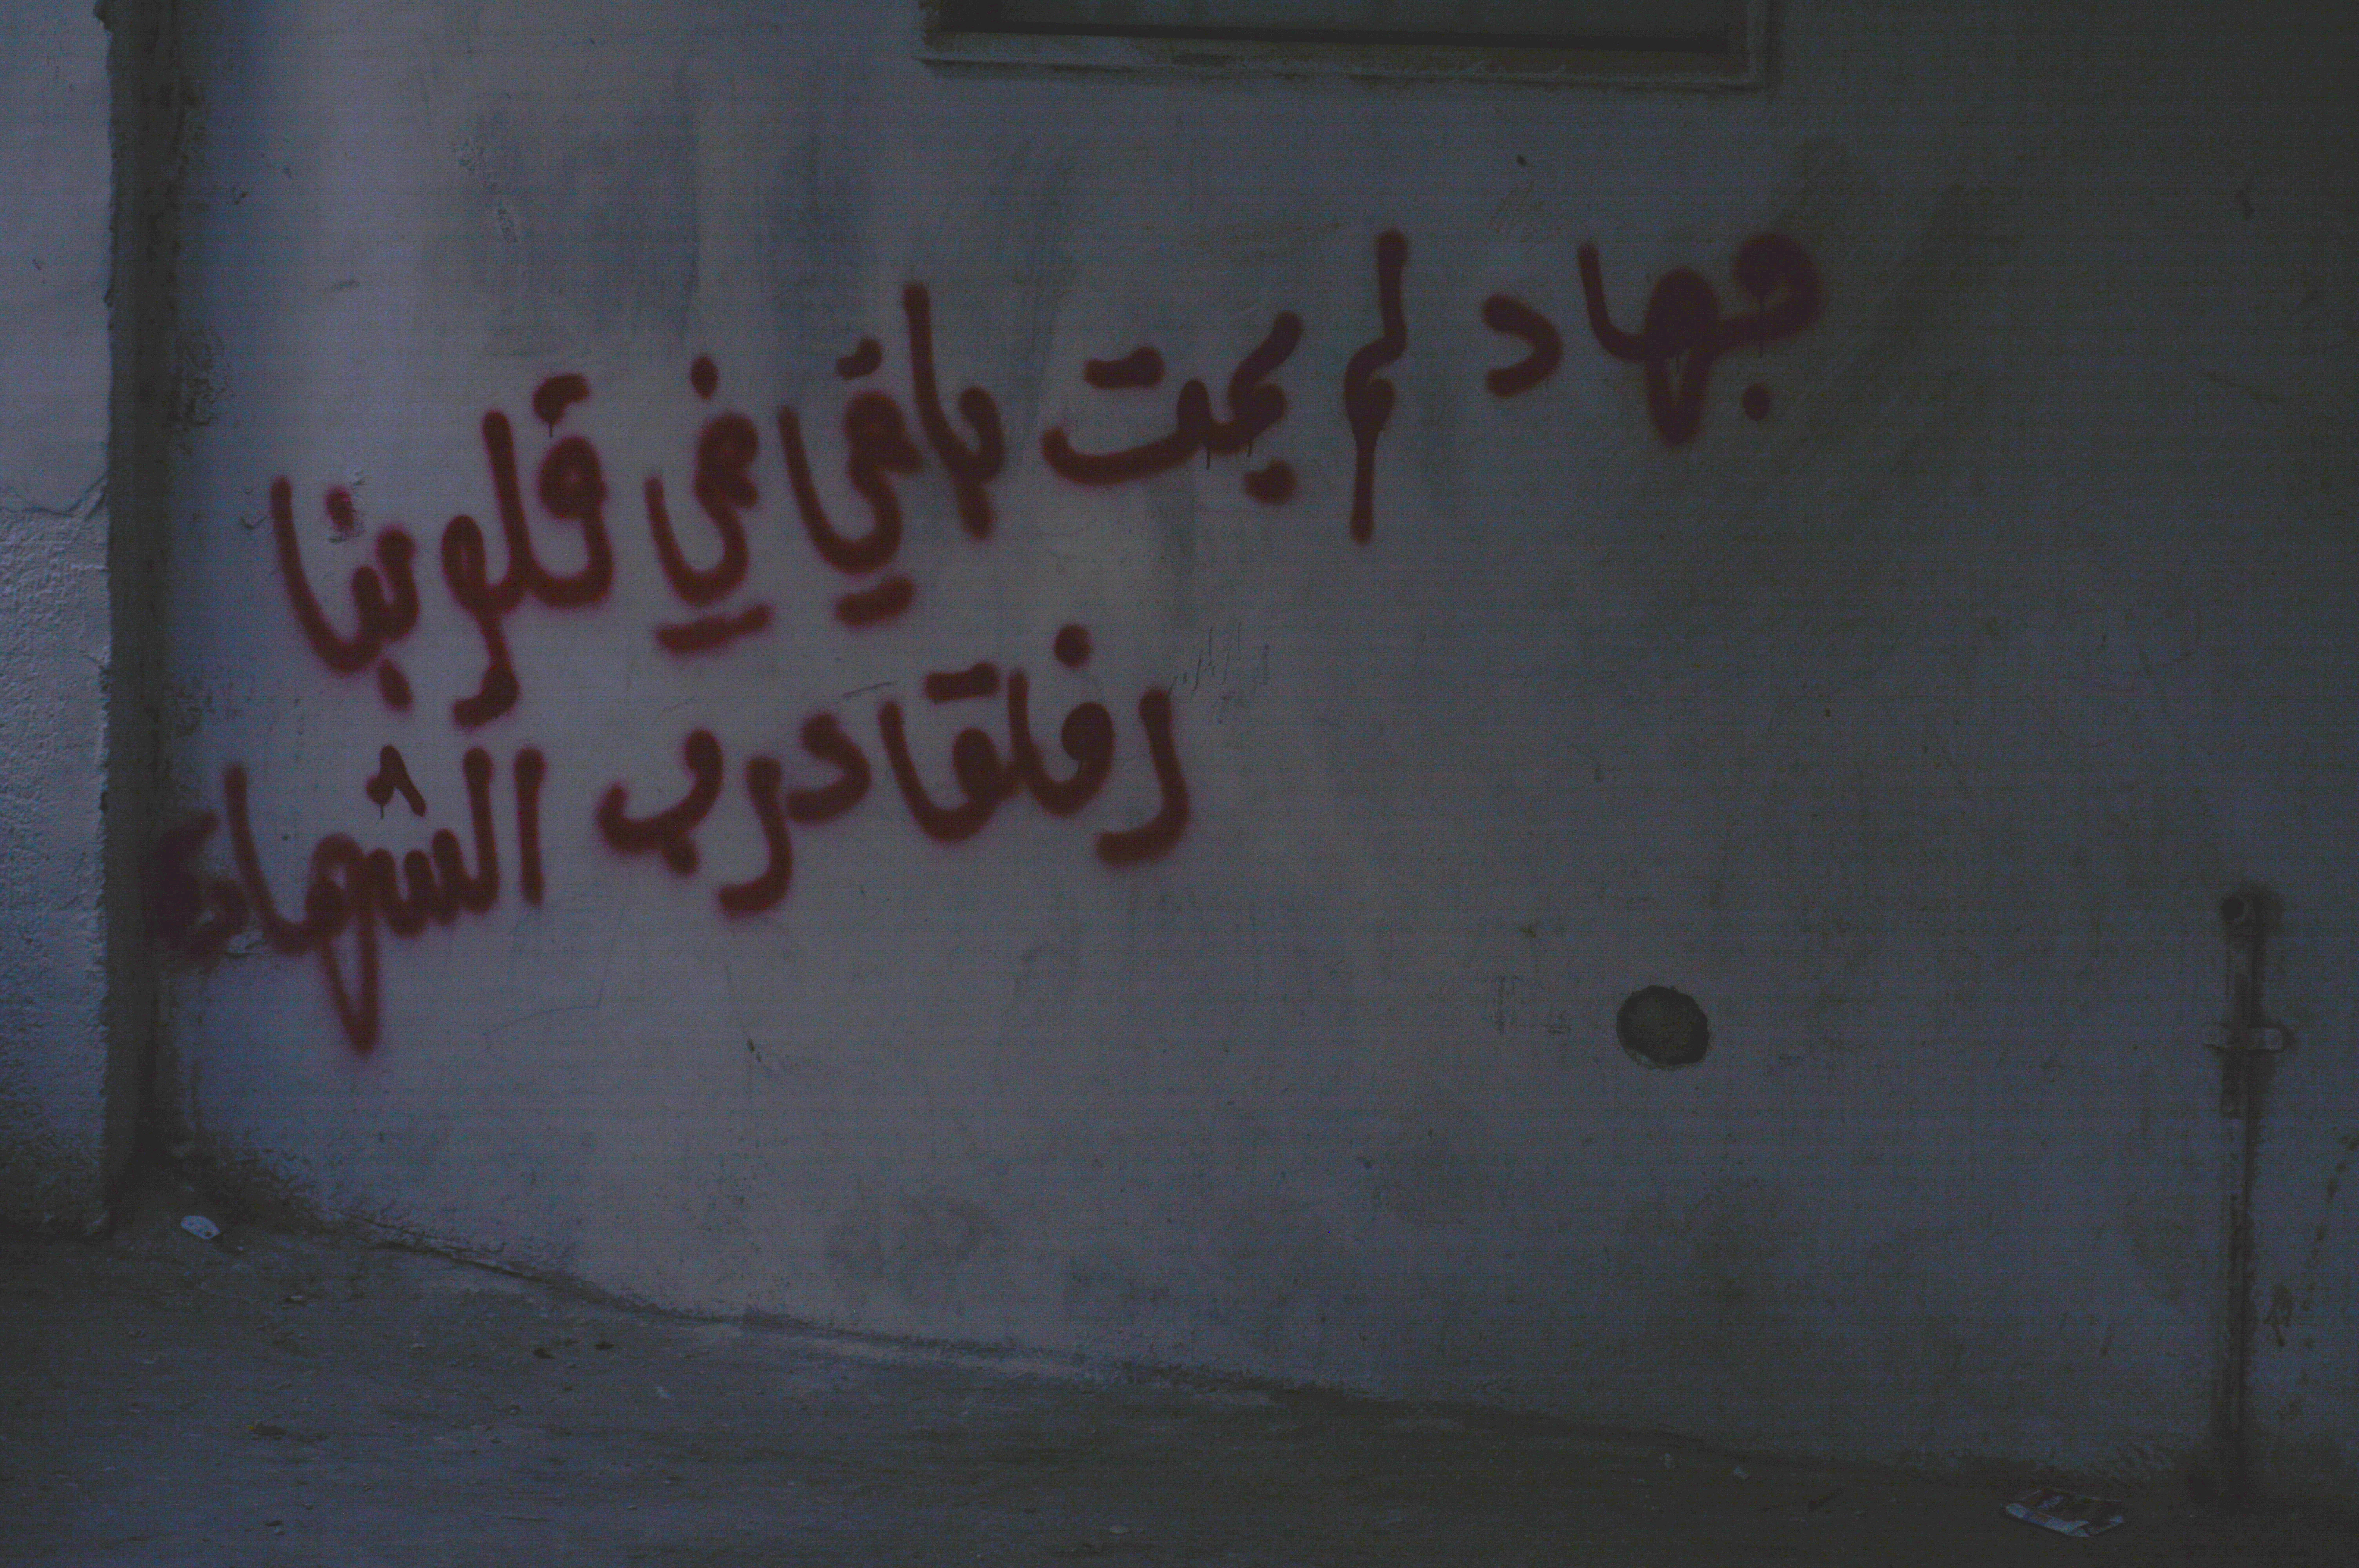 جهاد لم يمت باقي في قلوبنا
رفاقا درب الشهادة